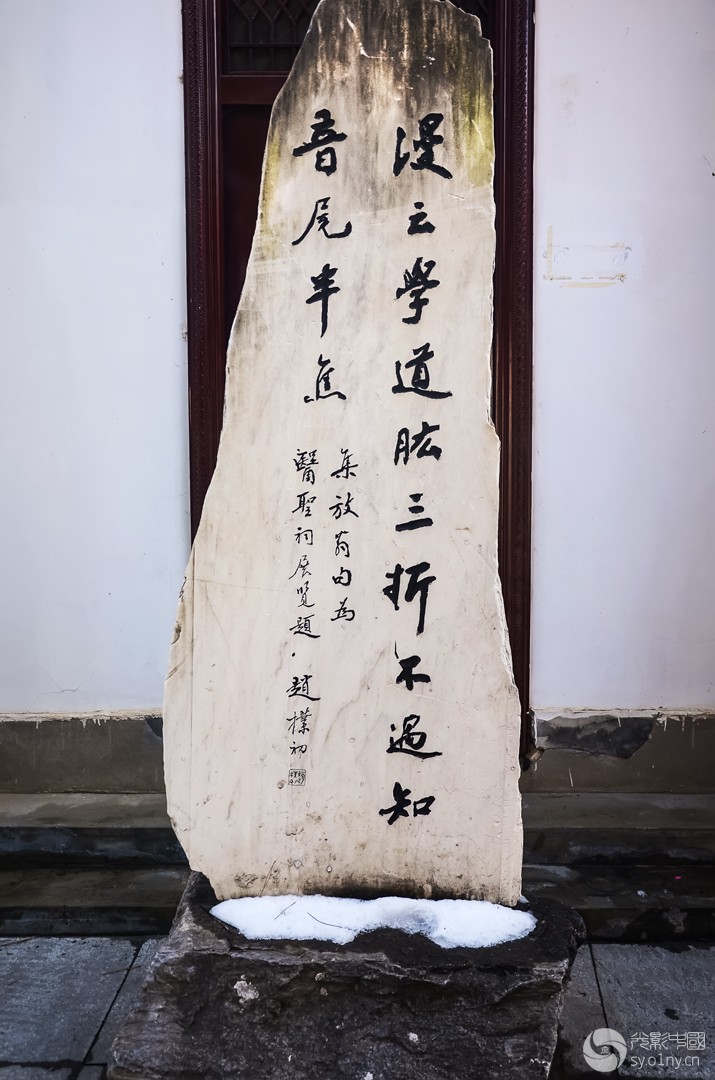 漫云學道肱三折不遇知
音尾半焦
集放翁句為
醫聖祠展覽題．趙樸初
光影中國
sy.olny.cn